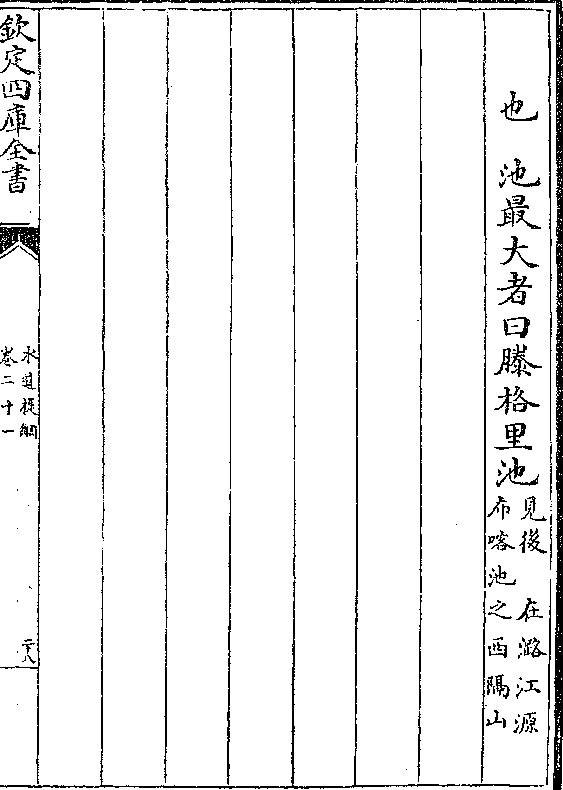 也　池最大者曰滕格里池見後　在潞江源
布喀池之西隔山
欽定四庫全書
水道提綱
卷二十一
二十八